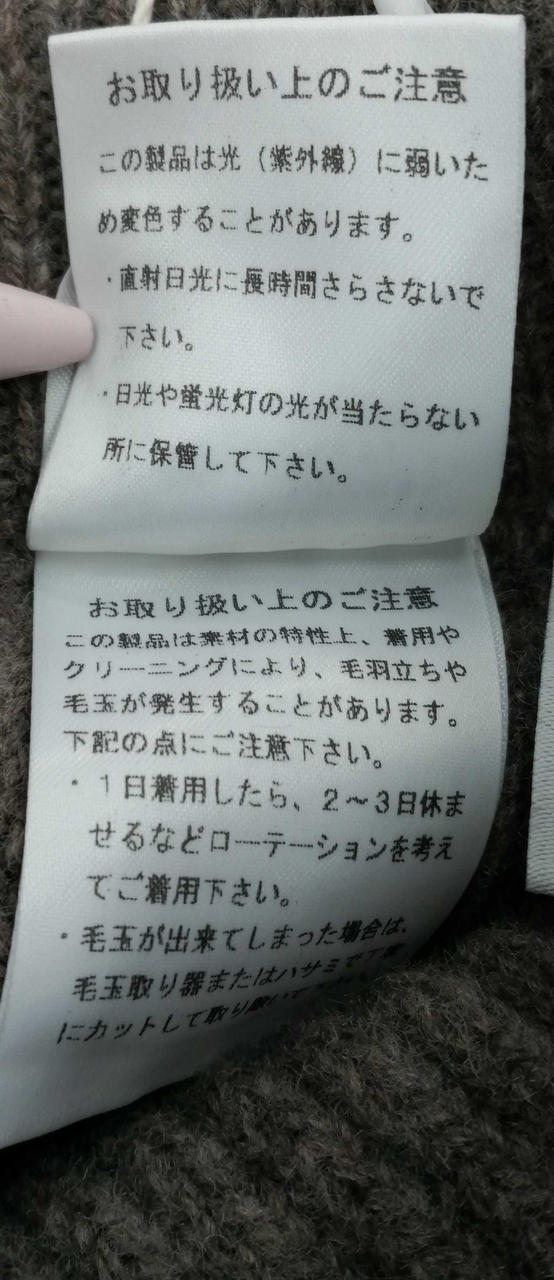 お取り扱い上のご注意
この製品は光（紫外線）に弱いた
め変色することがあります。
・直射日光に長時間さらさないで
下さい。
・日光や蛍光灯の光が当たらない
所に保管して下さい。
お取り扱い上のご注意
この製品は素材の特性上、着用や
クリーニングにより、毛羽立ちや
毛玉が発生することがあります。
下記の点にご注意下さい。
・１日着用したら、２〜３日休ま
せるなどローテーションを考え
てご着用下さい。
・毛玉が出来てしまった場合は、
毛玉取り器またはハサミで丁寧
にカットして取り除いて